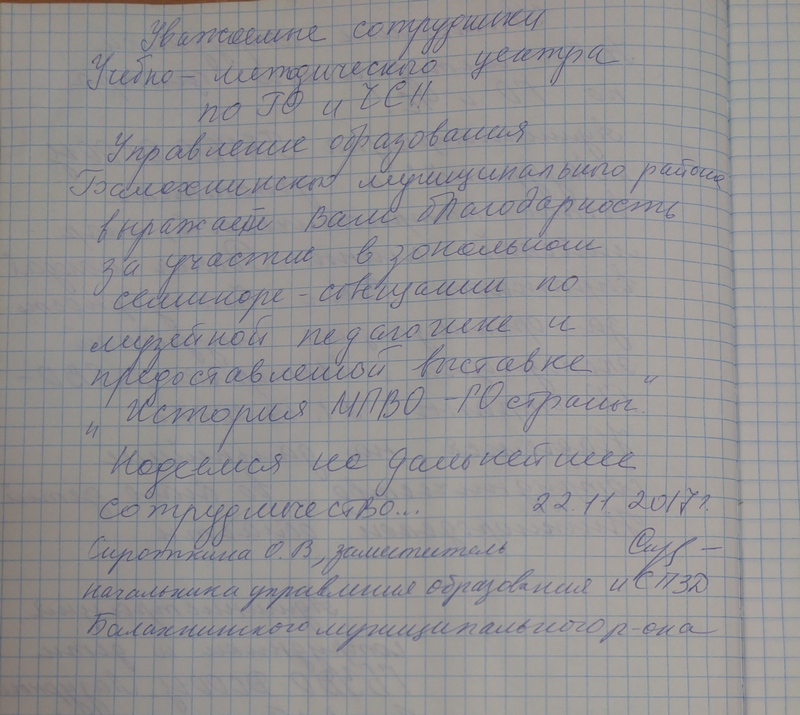 Уважаемые сотрудники
Учебно-методического центра
по ГО и ЧС!!
Управление образования
Балахнинского муниципального района
выражает Вам благодарность
за участие в зональном
семинаре-совещании по
музейной педагогике и
предоставленной выставке
"История МПВО-ГО страны".
Надеемся на дальнейшее
сотрудничество... 22.11.2017г.
Сироткина О.В., заместитель
начальника управления образования и СПЗД
Балахнинского муниципального р-она